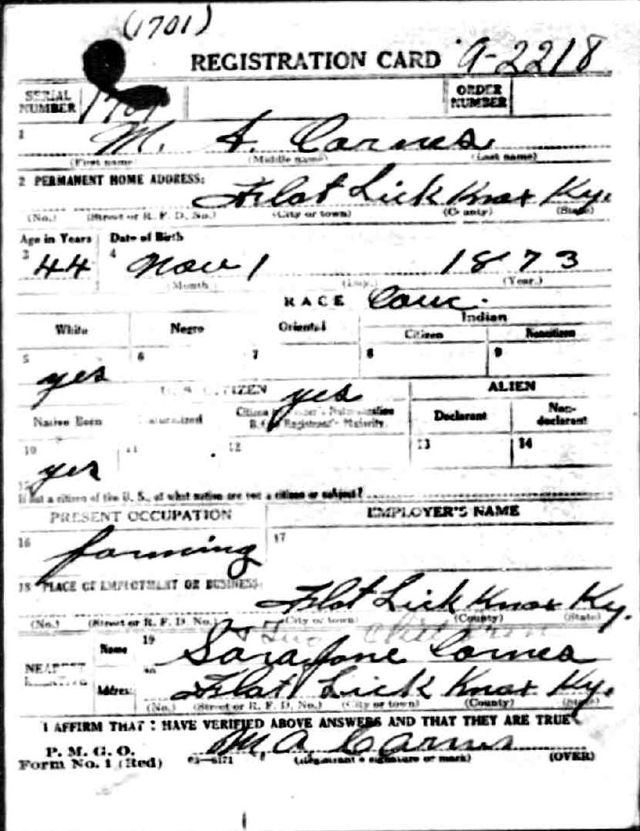 (1701)
REGISTRATION CARD A-2218
SERIAL NUMBER 1701 ORDER NUMBER
1 M. A. Carnes
(First name) (Middle name) (Last name)
2 PERMANENT HOME ADDRESS:
Flat Lick Knox Ky.
(No.) (Street or R. F. D. No.) (City or town) (County) (State)
Age in Years Date of Birth
3 44 4 Nov 1 1873
(Month) (Day.) (Year.)
RACE Cauc.
White Negro Oriental Indian
Citizen Noncitizen
5 6 7 8 9
yes
U. S. CITIZEN yes ALIEN
Native Born Naturalized Citizen by Father's Naturalization B. Registrant's Majority. Declarant Non-declarant
10 11 12 13 14
yes
15 If not a citizen of the U. S., of what nation are you a citizen or subject?
PRESENT OCCUPATION EMPLOYER'S NAME
16 farming 17
18 PLACE OF EMPLOYMENT OR BUSINESS:
Flat Lick Knox Ky.
(No.) (Street or R. F. D. No.) (City or town) (County) (State)
children
NEAREST RELATIVE Name 19 Sara Jane Carnes
Address 20 Flat Lick Knox Ky.
(No.) (Street or R. F. D. No.) (City or town) (County) (State)
I AFFIRM THAT I HAVE VERIFIED ABOVE ANSWERS AND THAT THEY ARE TRUE
P. M. G. O.
Form No. 1 (Red) 03-6171 M A Carnes
(Registrant's signature or mark) (OVER)